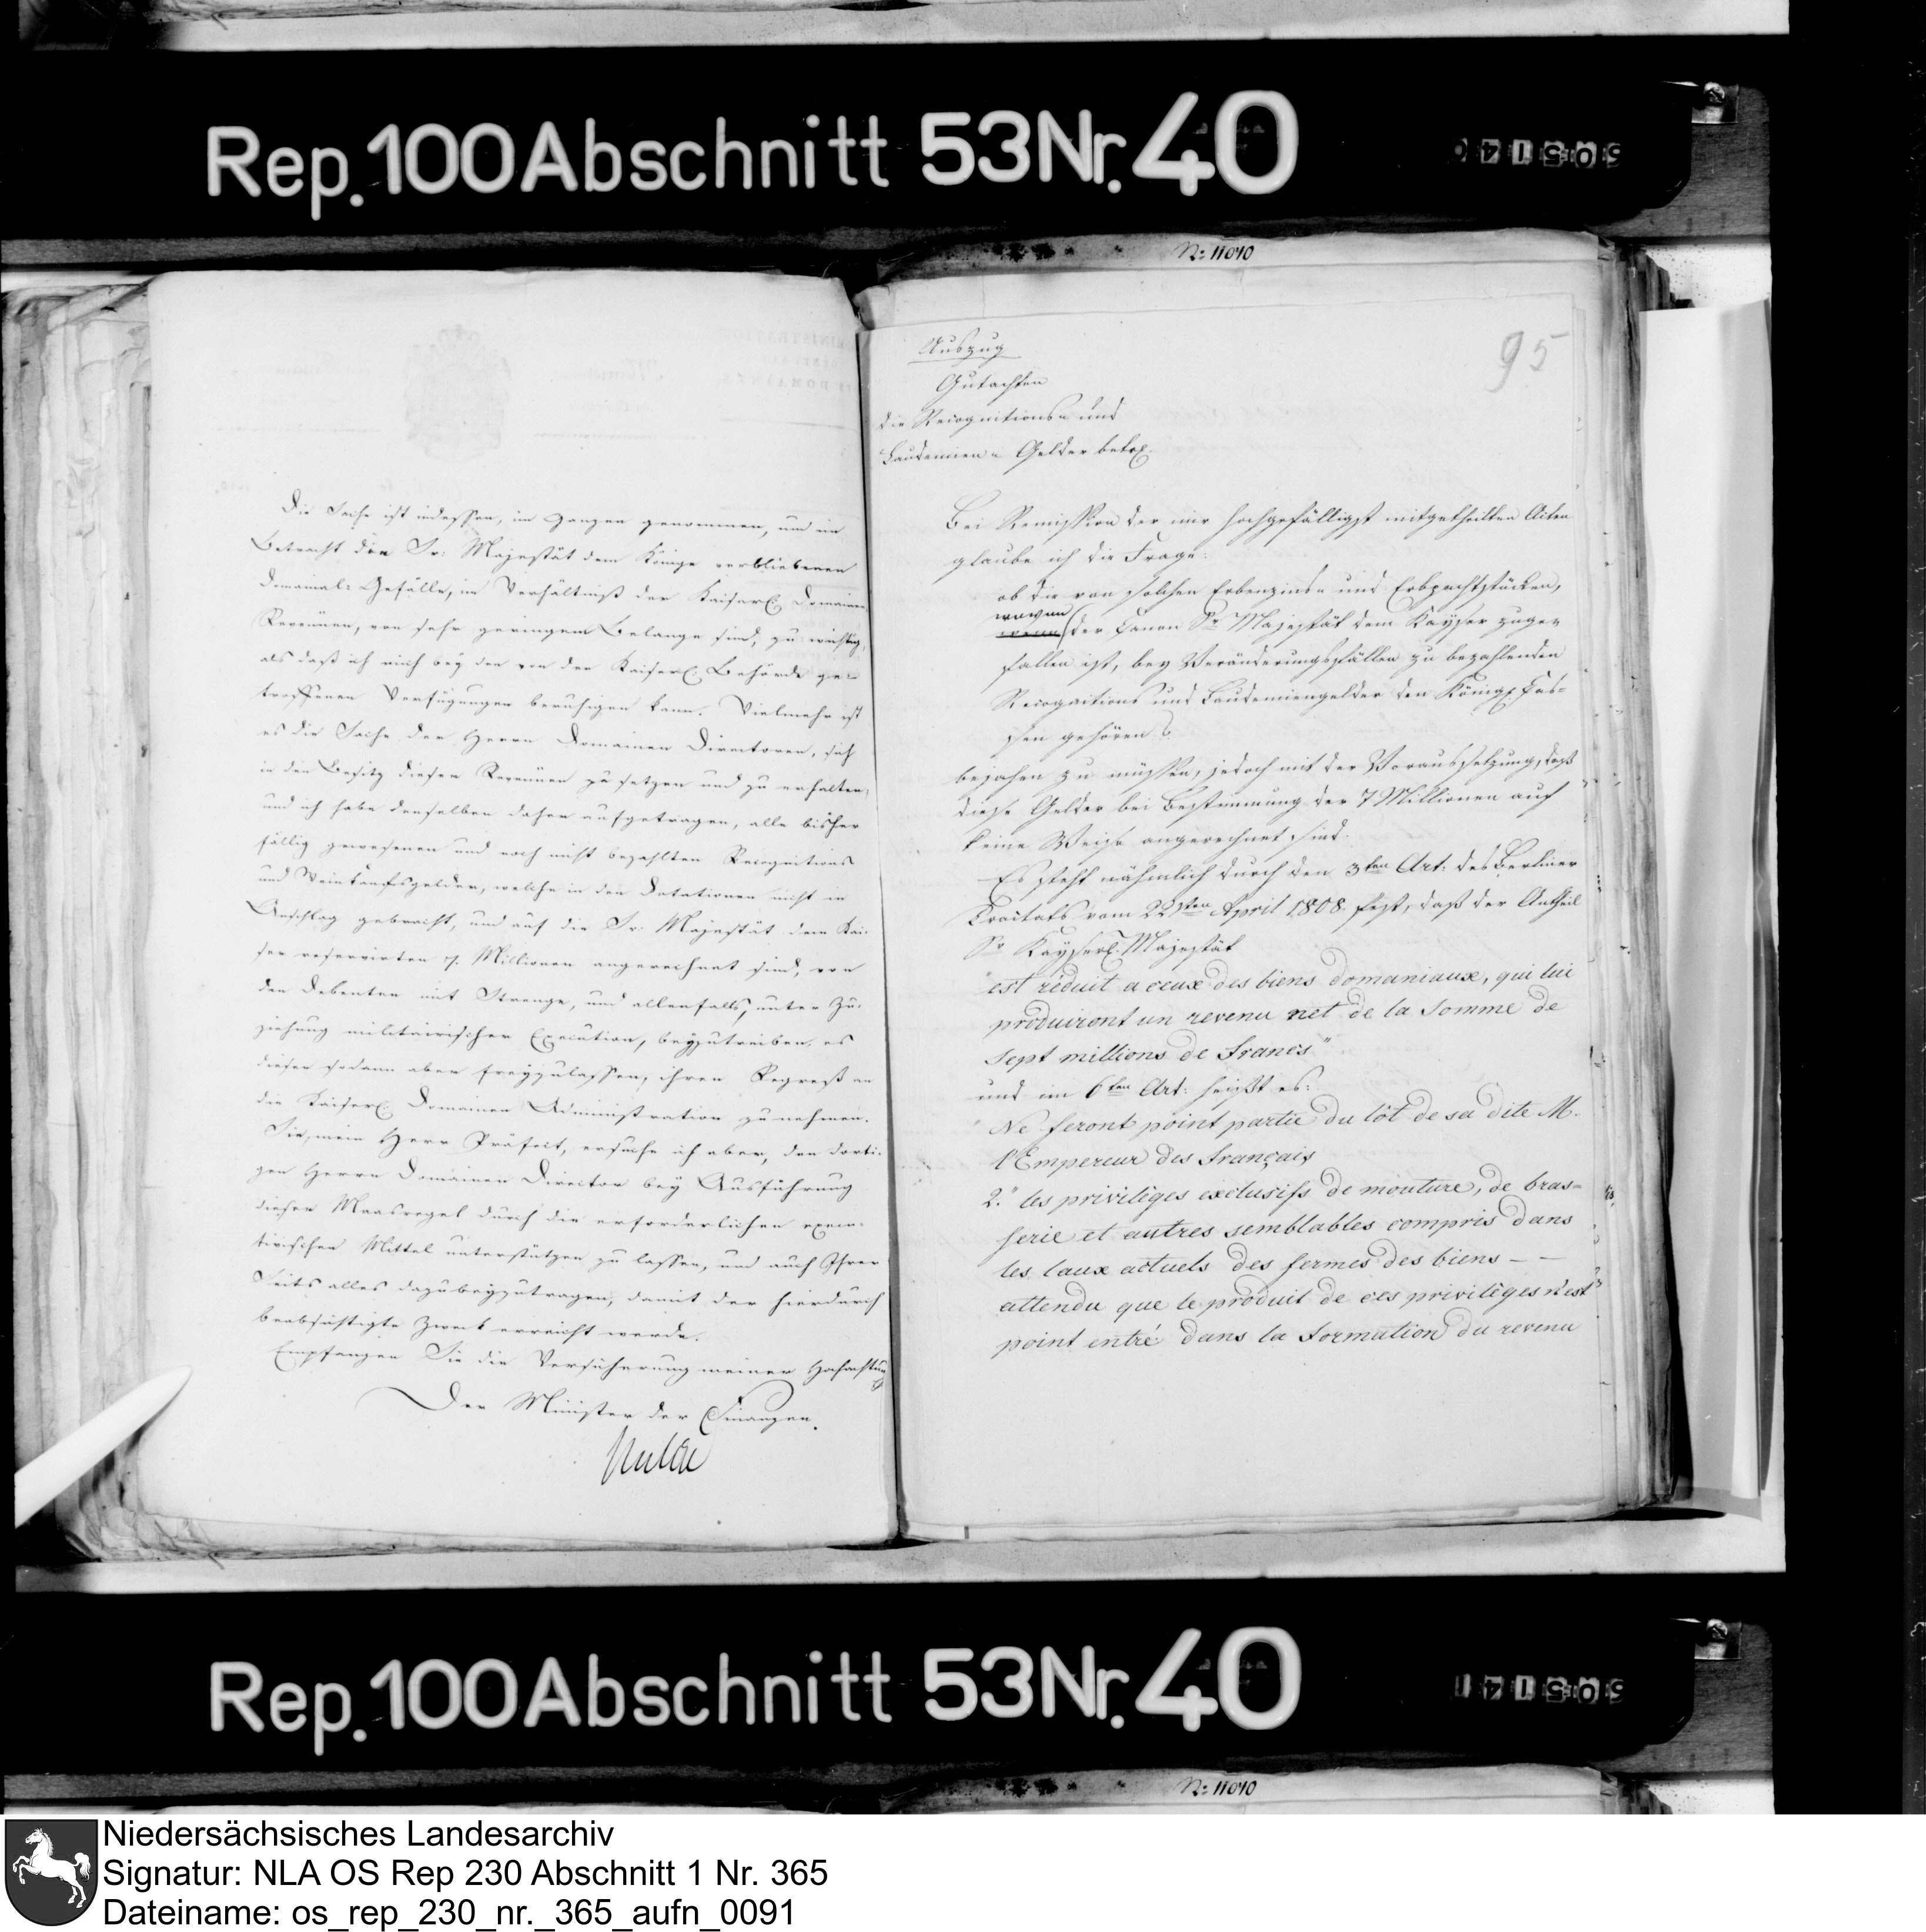 Rep. 100 Abschnitt 53 Nr. 40
No: 11040
Die Sache ist indessen, im Ganzen genommen, und im
Betracht den Sr: Majestät dem Könige verbliebenen
Domainal-Gefälle, im Verhältniß der Kaiserl. Domainen
Revenüen, von sehr geringem Belange sind, zu wichtig,
als daß ich mich bey den von der Kaiserl. Behörde ge-
troffenen Verfügungen beruhigen kann. Vielmehr ist
es die Sache der Herrn Domainen Directoren, sich
in den Besitz dieser Revenüen zu setzen und zu erhalten,
und ich habe denselben daher aufgetragen, alle bisher
fällig gewesenen und noch nicht bezahlten Recognitions
und Weinkaufsgelder, welche in den Dotationen nicht in
Anschlag gebracht, und auf die Sr: Majestät dem Kai-
ser reservirten 7. Millionen angerechnet sind, von
den Debenten mit Strenge, und allenfalls, unter Zu-
ziehung militairischer Execution, beyzutreiben, es
dieser sodann aber freyzulassen, ihren Regreß an
die Kaiserl. Domainen Administration zu nehmen.
Sie, mein Herr Präfect, ersuche ich aber, den dorti-
gen Herrn Domainen Director bey Ausführung
dieser Maasregel durch die erforderlichen execu-
tivischen Mittel unterstützen zu lassen, und auch Ihrer
Seits alles dazu beyzutragen, damit der hierdurch
beabsichtigte Zweck erreicht werde.
Empfangen Sie die Versicherung meiner Hochachtung
Der Minister der Finanzen.
95
Auszug
Gutachten
die Recognitions- und
Laudemien- Gelder betr.
Bei Remission der mir hochgefälligst mitgetheilten Acten
glaube ich die Frage:
ob die von solchen Erbenzins- und Erbpachtstücken,
wovon
wenn (der Canon Sr Majestät dem Kayser zuge-
fallen ist, bey Veränderungsfällen zu bezahlenden
Recognitions und Laudemiengelder den Königl. Cas-
sen gehören?
bejahen zu müssen, jedoch mit der Voraussetzung, daß
diese Gelder bei Bestimmung der 7 Millionen auf
keine Weise angerechnet sind.
Es steht nähmlich durch den 3ten Art: des Berliner
Tractats vom 22sten April 1808. fest, daß der Antheil
Sr Kayserl. Majestät
"est réduit a ceux des biens domaniaux, qui lui
produiront un revenu net de la somme de
sept millions de francs"
und im 6ten Art: heißt es:
"Ne feront point partie du lôt de sa dite M.
l'Empereur des français
2." les privilèges exclusifs de mouture, de bras-
serie et autres semblables compris dans
les baux actuels des fermes des biens — —
attendu que le produit de ces privilèges n'est
point entré dans la formation du revenu
Rep. 100 Abschnitt 53 Nr. 40
No: 11040
Niedersächsisches Landesarchiv
Signatur: NLA OS Rep 230 Abschnitt 1 Nr. 365
Dateiname: os_rep_230_nr._365_aufn_0091